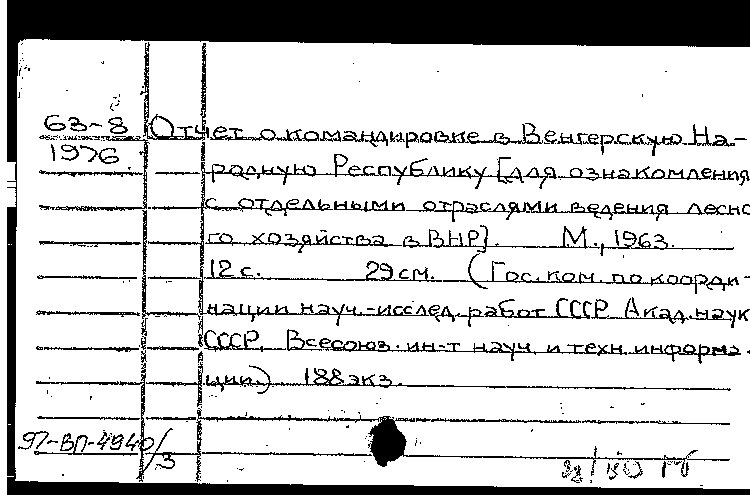 63-8 Отчет о командировке в Венгерскую На-
1976. родную Республику [для ознакомления
с отдельными отраслями ведения лесно
го хозяйства в ВНР]. М., 1963.
12 с. 29 см. (Гос. ком. по коорди-
нации науч.-исслед. работ СССР. Акад. наук
СССР. Всесоюз. ин-т науч. и техн. информа-
ции.) 188 экз.
97-ВП-4940/3